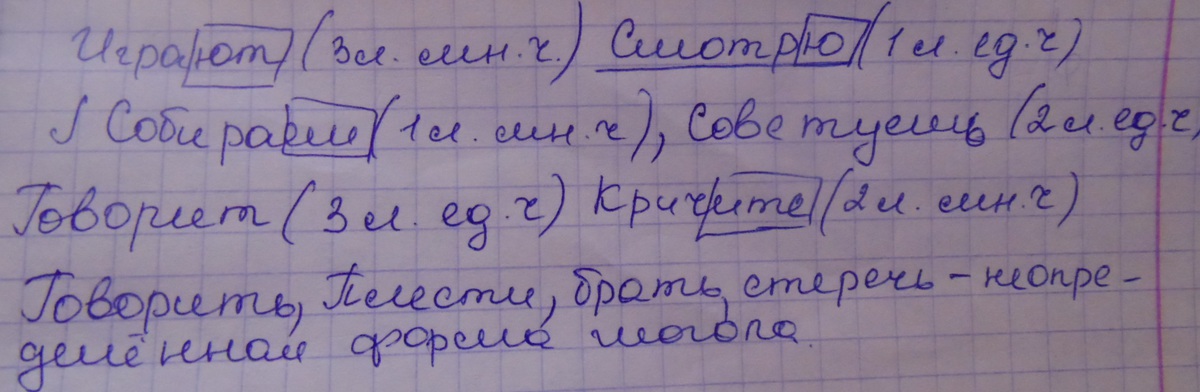 Играют (3л. мн.ч.) Смотрю (1л. ед.ч)
Собираем (1л. мн.ч), Советуешь (2л. ед.ч
Говорит (3л. ед.ч) Кричите (2л. мн.ч)
Говорить, Плести, брать, стеречь - неопре-
делённая форма глагола.